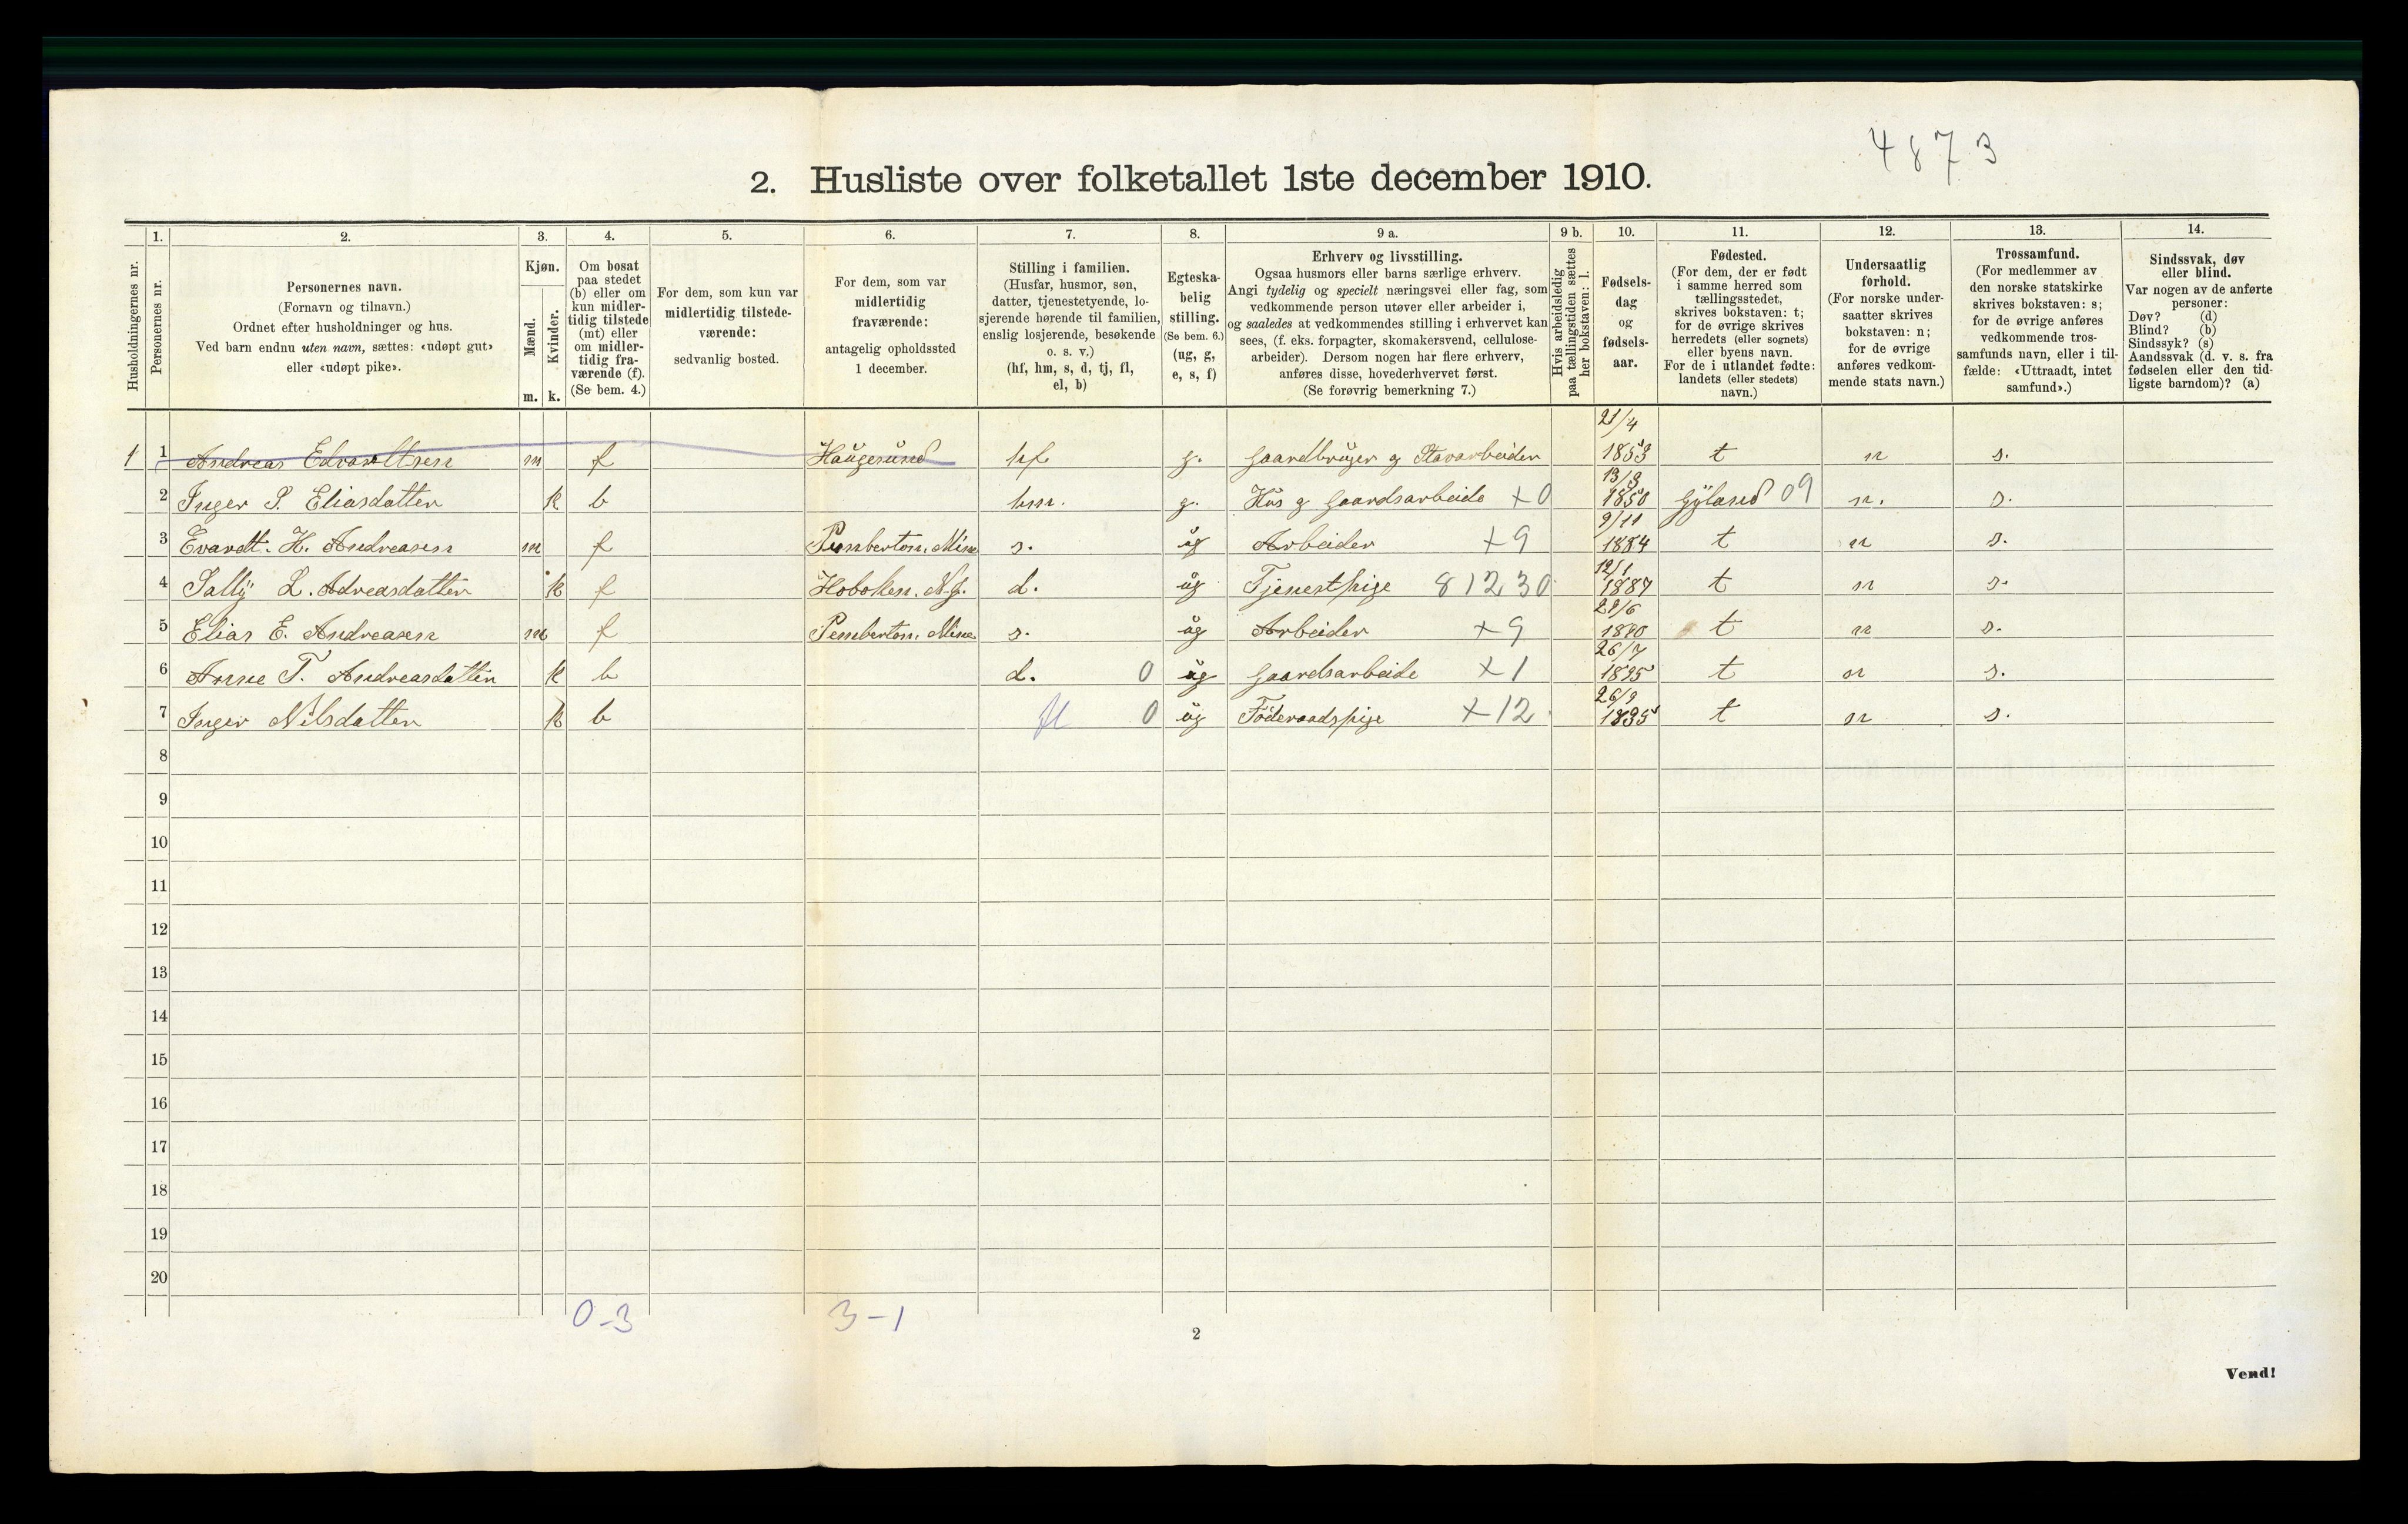 4873
2. Husliste over folketallet 1ste december 1910.
Husholdningernes nr.
1.
Personernes nr.
2.
Personernes navn.
(Fornavn og tilnavn.)
Ordnet efter husholdninger og hus.
Ved barn endnu uten navn, sættes: «udøpt gut»
eller «udøpt pike».
3.
Kjøn.
Mænd.
Kvinder.
m. k.
4.
Om bosat
paa stedet
(b) eller om
kun midler-
tidig tilstede
(mt) eller
om midler-
tidig fra-
værende (f).
(Se bem. 4.)
5.
For dem, som kun var
midlertidig tilstede-
værende:
sedvanlig bosted.
6.
For dem, som var
midlertidig
fraværende:
antagelig opholdssted
1 december.
7.
Stilling i familien.
(Husfar, husmor, søn,
datter, tjenestetyende, lo-
sjerende hørende til familien,
enslig losjerende, besøkende
o. s. v.)
(hf, hm, s, d, tj, fl,
el, b)
8.
Egteska-
belig
stilling.
(Se bem. 6.)
(ug, g,
e, s, f)
9 a.
Erhverv og livsstilling.
Ogsaa husmors eller barns særlige erhverv.
Angi tydelig og specielt næringsvei eller fag, som
vedkommende person utøver eller arbeider i,
og saaledes at vedkommendes stilling i erhvervet kan
sees, (f. eks. forpagter, skomakersvend, cellulose-
arbeider). Dersom nogen har flere erhverv,
anføres disse, hovederhvervet først.
(Se forøvrig bemerkning 7.)
9 b.
Hvis arbeidsledig
paa tællingstiden sættes
her bokstaven: l.
10.
Fødsels-
dag
og
fødsels-
aar.
11.
Fødested.
(For dem, der er født
i samme herred som
tællingsstedet,
skrives bokstaven: t;
for de øvrige skrives
herredets (eller sognets)
eller byens navn.
For de i utlandet fødte:
landets (eller stedets)
navn.)
12.
Undersaatlig
forhold.
(For norske under-
saatter skrives
bokstaven: n;
for de øvrige
anføres vedkom-
mende stats navn.)
13.
Trossamfund.
(For medlemmer av
den norske statskirke
skrives bokstaven: s;
for de øvrige anføres
vedkommende tros-
samfunds navn, eller i til-
fælde: «Uttraadt, intet
samfund».)
14.
Sindssvak, døv
eller blind.
Var nogen av de anførte
personer:
Døv? (d)
Blind? (b)
Sindssyk? (s)
Aandssvak (d. v. s. fra
fødselen eller den tid-
ligste barndom)? (a)
1 1 Andreas Edvardtsen m f Haugesund hf. g. Gaardbruger g Stavarbeider 21/4 1853 t n s.
2 Inger S. Eliasdatter k b hm. g. Hus g Gaardsarbeide +0 13/3 1850 Gyland 09 n. s.
3 Evardt. H. Andreasen m f Pemberton. Mine s. ug Arbeider +9 9/11 1884 t n s.
4 Sally L. Adreasdatter k f Hoboken. N.J. d. ug Tjenestpige 81230 12/1 1887 t n s.
5 Elias E. Andreasen m f Pemberton. Mine s. ug Arbeider +9 21/6 1890 t n s.
6 Anne T. Andreasdatter k b d. 0 ug Gaardsarbeide +1 26/7 1895 t n s.
7 Inger Nilsdatter k b fl 0 ug Föderaadspige +12 26/9 1835 t n s.
8
9
10
11
12
13
14
15
16
17
18
19
20
0-3 3-1
2
Vend!